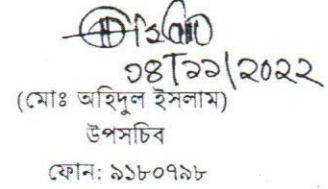 ১৪/১১/২০২২
(মোঃ অহিদুল ইসলাম)
উপসচিব
ফোন: ৯১৮০৭৯৮